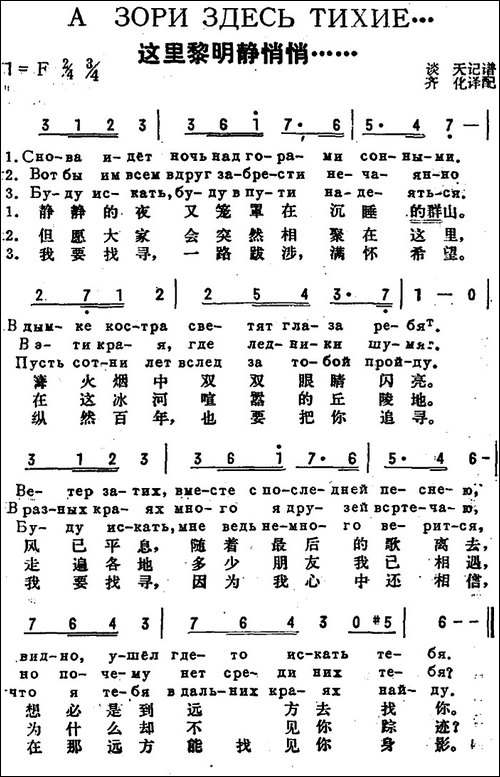 А ЗОРИ ЗДЕСЬ ТИХИЕ…
这里黎明静悄悄……
1=F 2/4 3/4
谈 天记谱
齐 化译配
3 1 2 3 | 3 6 1 7·6 | 5·4 7— |
1. Снова и-дёт ночь над го-ра- ми сон-ны-ми.
2. Вот бы им всем вдруг за-бре-сти не-ча- ян-но
3. Бу-ду ис-кать, бу-ду в пу-ти на-де- ять-ся.
1. 静 静 的 夜 又 笼 罩 在 沉 睡 的群山。
2. 但 愿 大 家 会 突 然 相 聚 在 这 里,
3. 我 要 找 寻, 一 路 跋 涉, 满 怀 希 望。
2 7 1 2 | 2 5 4 3·7 | 1 — 0 |
В дым-ке кос-тра све- тят гла-за ре-бят.
В э-ти кра-я, где лед-ни-ки шу-мят.
Пусть сот-ни лет вслед за то-бой прой-ду.
篝 火 烟 中 双 双 眼 睛 闪 亮。
在 这 冰 河 喧 嚣 的 丘 陵 地。
纵 然 百 年, 也 要 把 你 追 寻。
3 1 2 3 | 3 6 1 7·6 | 5·4 6— |
Ве- тер за-тих, вме-сте с по-сле-дней пе-снею,
В раз-ных кра-ях мно-го я дру-зей всрте-ча-ю,
Бу- ду ис-кать, мне ведь не-мно-го ве-рит-ся,
风 已 平 息, 随 着 最 后 的 歌 离 去,
走 遍 各 地 多 少 朋 友 我 已 相 遇,
我 要 找 寻, 因 为 我 心 中 还 相 信,
7 6 4 3 | 7 6 4 3 0 #5 | 6 — — |
вид-но, у-шёл где- то ис-кать те- бя.
но по-че-му нет сре-ди них те-бя?
что я те-бя в даль-них кра-ях най-ду.
想 必 是 到 远 方 去 找 你。
为 什 么 却 不 见 你 踪 迹?
在 那 远 方 能 找 见 你 身 影。